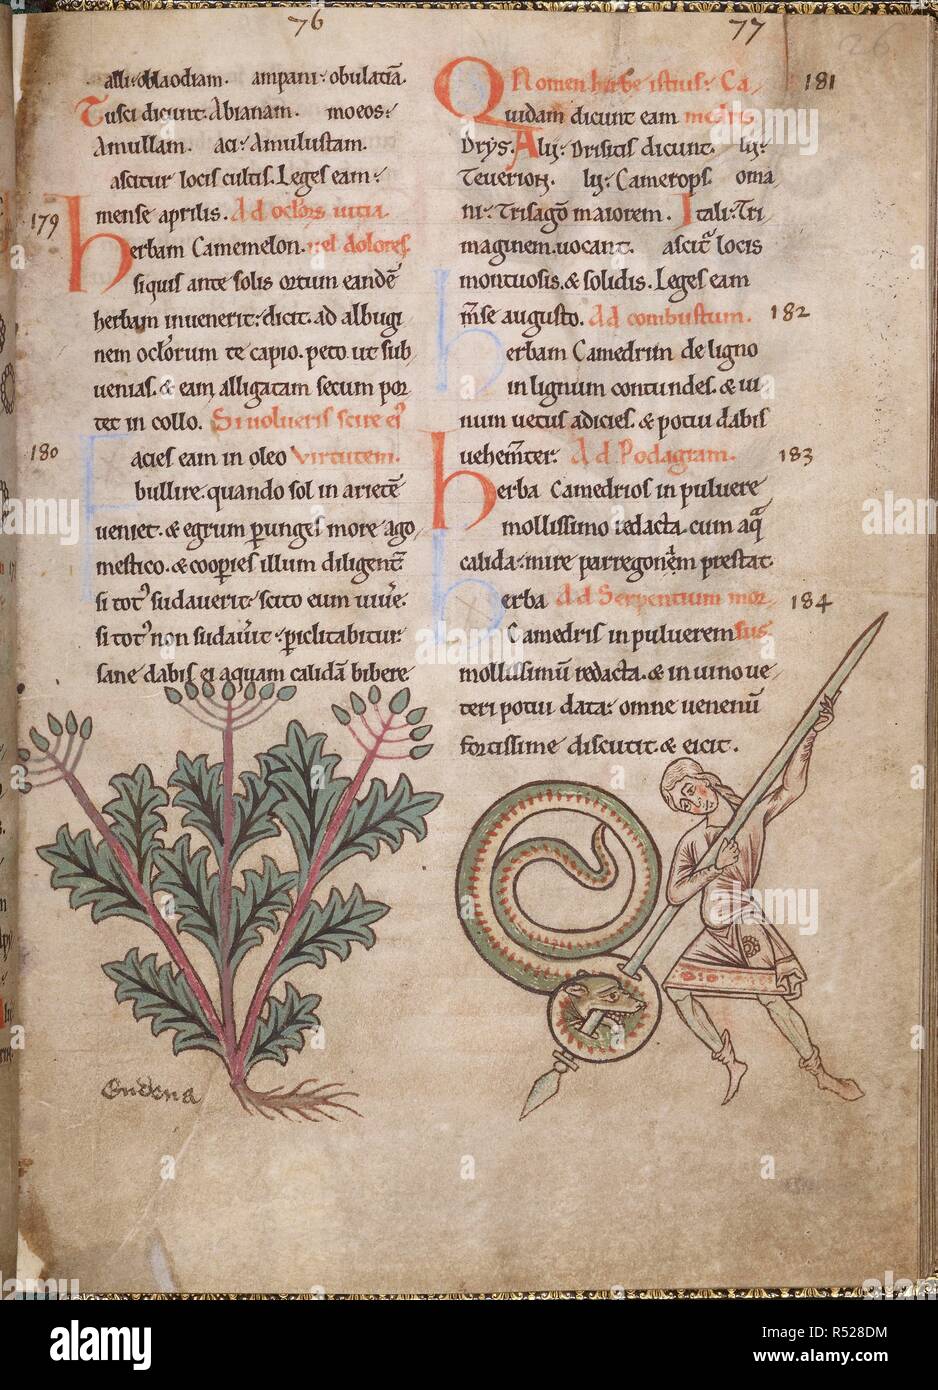 76
77
alii: oblaodiam. ampani: obulaciã.
Tusci dicunt. Abianam. moeos:
Amullam. aci: Amulustam.
ascitur locis cultis. Leges eam:
179
mense aprilis. Ad oclo͛s uitia
herbam Camemelon. uel dolores.
siquis ante solis ortum eandē
herbam inuenerit: dicit. ad albugi
nem oclo͛rum te capio. peto. ut sub
uenias. & eam alligatam secum por
tet in collo. Si uolueris scire ei᾽
180
acies eam in oleo virtutem.
bullire. quando sol in arietē
ueniet. & egrum punges more
mestico. & coopies illum diligent̄
si tot᾽ sudauerit: scito eum uiuẽ.
si tot᾽ non sudau̾it: piclitabitur:
sane dabis ei aquam calidã bibere
Gndena
Nomen herbe istius: Ca
181
Quidam dicunt eam medris
Drys. Alij: Drisitis dicunt. lij:
lij: Camerops. oma
ni: Trisagõ maiorem. Itali: Tri
maginem. uocant. ascit᷑ locis
montuosis. & solidis. Leges eam
m̄se augusto. Ad combustum.
182
herbam Camedrim de ligno
in lignum contundes. & ui
num uetus adicies. & potui dabis
uehem̄ter: Ad Podagram.
183
herba Camedrios in puluere
mollissimo redacta. cum aq̃
calida: mire prestat.
herba Ad Serpentium mor
184
Camedris in puluerem sus.
mollissimũ redacta. & in uino ue
teri potui data: omne uenenũ
fortissime discutit. & eicit.
alamy
alamy stock photo
Image ID: R528DM
www.alamy.com